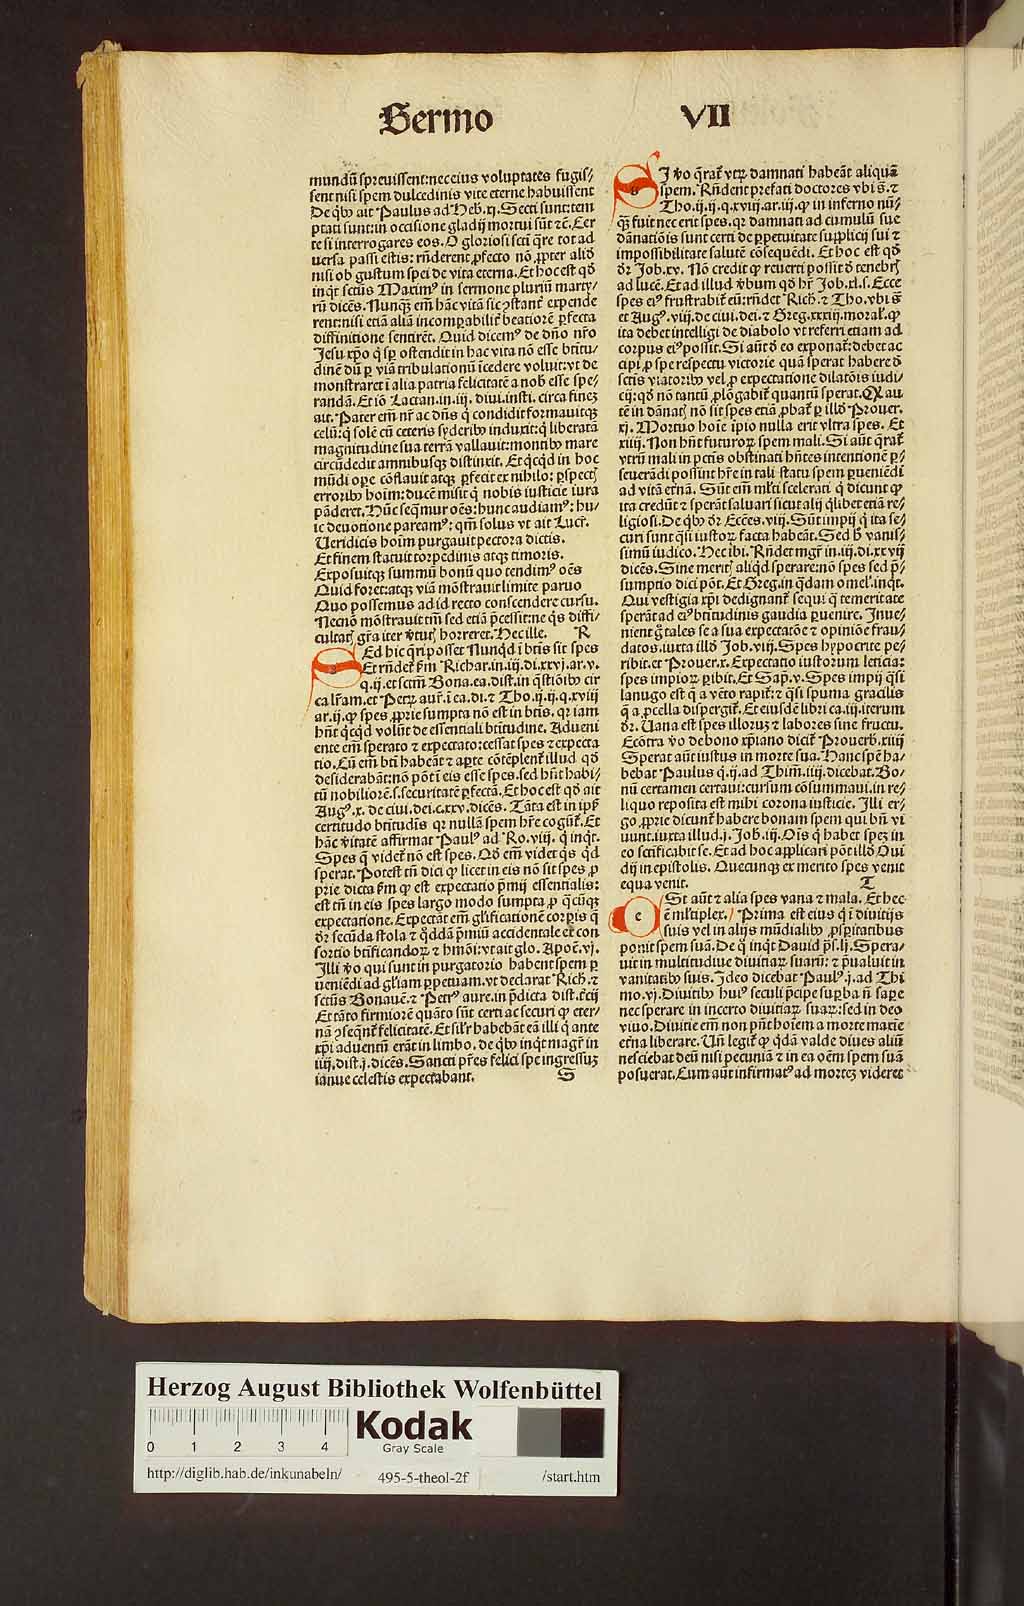 Sermo VII
mundū spreuissent: nec eius voluptates fugis/
sent nisi spem dulcedinis vite eterne habuissent
De q̄bꝰ ait Paulus ad Heb. xj. Secti sunt: tem
ptati sunt: in occisione gladij mortui sūt ⁊c̄. Cer
te si interrogares eos. O gloriosi scti q̄re tot ad
uersa passi estis: rn̄derent ꝓfecto nō ꝓpter aliō
nisi ob gustum spei de vita eterna. Et hoc est qō
inq̄t sctūs Maximꝰ in sermone pluriū marty/
rū dicēs. Nunqꝫ em̄ hāc vitā sic ꝯstant̄ expende
rent: nisi etiā aliā incomꝑabilit̄ beatiorē ꝑfecta
diffinitione sentirēt. Quid dicemꝰ de dn̄o nr̄o
Jesu xp̄o q̄ sꝑ ostendit in hac vita nō esse btitu/
dinē dū ꝑ viā tribulationū īcedere voluit: vt de
monstraret ī alia patria felicitatē a nob̄ esse spe/
randā. Et iō Lactan. in. iij. diui. insti. circa fineꝫ
ait. Pater em̄ nr̄ ac dn̄s q̄ condidit formauitqꝫ
celū: q̄ solē cū ceteris syderibꝰ induxit: q̄ liberatā
magnitudine sua terrā vallauit: montibꝰ mare
circūdedit amnibusqꝫ distinxit. Et q̄cq̄d in hoc
mūdi oꝑe cōflauit atqꝫ ꝑfecit ex nihilo: ꝑspectꝭ
erroribꝰ hoīm: ducē misit q̄ nobis iusticie iura
pāderet. Hūc seq̄mur oēs: hunc audiamꝰ: hu/
ic deuotione pareamꝰ: qm̄ solus vt ait Lucr̄.
Ueridicis hoīm purgauit pectora dictis.
Et finem statuit torpedinis atqꝫ timoris.
Exposuitqꝫ summū bonū quo tendimꝰ oēs
Quid foret: atqꝫ viā mōstrauit limite paruo
Quo possemus ad id recto conscendere cursu.
Necnō mōstrauit tm̄ sed etiā p̄cessit: ne q̄s diffi/
cultatꝭ gr̄a iter v̄tutꝭ horreret. Hec ille. R
SEd hic q̄ri posset Nunqd ī btis sit spes
Et rn̄det ẜm Richar. in. iij. di. xxvj. ar. v.
q. ij. et sctm̄ Bona. ea. dist. in q̄stioībꝰ cir
ca lr̄am. et Petrꝰ aur̄. ī ea. di. ⁊ Tho. ij. ij. q. xviij
ar. ij. ꝙ spes ꝓprie sumpta nō est in btis. qꝛ iam
hn̄t q̄cq̄d volūt de essentiali btitudine. Adueni
ente em̄ sperato ⁊ expectato: cessat spes ⁊ expecta
tio. Cū em̄ bt̄i habeāt ⁊ aꝑte cōtēplent̄ illud qō
desiderabāt: nō pōt ī eis esse spes. sed hn̄t habi/
tū nobiliorē. s. securitatē ꝑfectā. Et hoc est qō ait
Augꝰ. x. de ciui. dei. c. xxv. dicēs. Tāta est in ipẜ
certitudo btitudīs qꝛ nullā spem hr̄e cogūt̄. Et
hāc v̄itatē affirmat Paulꝰ ad Ro. viij. q̄ inq̄t.
Spes q̄ videt̄ nō est spes. Qō em̄ videt q̄s q̄d
sperat. Potest tn̄ dici ꝙ licet in eis nō sit spes ꝓ
prie dicta ꝓm̄ ꝙ est expectatio p̄mij essentialis:
est tn̄ in eis spes largo modo sumpta ꝓ q̄cūqꝫ
expectatione. Expectāt em̄ gl̄ificationē corꝑis q̄
dr̄ secūda stola ⁊ q̄ddā p̄miū accidentale ex con
sortio btificandoꝝ ⁊ hmōi: vt ait glo. Apoc̄. vj.
Illi v̄o qui sunt in purgatorio habent spem ꝑ
ueniēdi ad gl̄iam ꝑpetuam. vt declarat Rich. ⁊
sctūs Bonauē. ⁊ Petrꝰ aure. in p̄dicta dist. r̄cij
Et tāto firmiorē quāto sūt certi ac securi ꝙ eter/
nā ꝯseq̄nt̄ felicitatē. Et sil̄r habebāt eā illi q̄ ante
xp̄i aduentū erāt in limbo. de q̄bꝰ inq̄t magr̄ in
iiij. dist. j. dicēs. Sancti pr̄es felici spe ingressuꝫ
ianue celestis expectabant. S
SI v̄o q̄rat̄ vtꝝ damnati habeāt aliquā
spem. Rn̄dent prefati doctores vbi s̄. ⁊
Tho. ij. ij. q. xviij. ar. iij. ꝙ in inferno nū/
qꝫ fuit nec erit spes. qꝛ damnati ad cumulū sue
dānatiōis sunt certi de ꝑpetuitate supplicij sui ⁊
impossibilitate salutē cōsequēdi. Et hoc est qō
dr̄ Job. xv. Nō credit ꝙ reuerti possit ō tenebrꝭ
ad lucē. Et ad illud v̄bum qō hr̄ Job. xl. s. Ecce
spes eiꝰ frustrabit̄ eū: rn̄det Rich. ⁊ Tho. vbi s̄
et Augꝰ. viij. de ciui. dei. ⁊ Greg. xxxiij. moral̄. ꝙ
ita debet intelligi de diabolo vt referri etiam ad
corpus eiꝰ possit. Si aūt ō eo exponat̄: debet ac
cipi ꝓ spe respectu victorie quā sperat habere ō
sctis viatoribꝰ vel ꝓ expectatione dilatōis iudi/
cij: qō nō tantū ꝓlōgabit̄ quantū sperat. Qꝫ au
tē in dānatꝭ nō sit spes etiā ꝓbat̄ ꝑ illō Prouer.
xj. Mortuo hoīe īpio nulla erit vltra spes. Et
xiiij. Non hn̄t futuroꝝ spem mali. Si aūt q̄rat̄
vtrū mali in pctīs obstinati hn̄tes intentionē ꝑ/
seuerādi possint hr̄e in tali statu spem ꝑueniēdi
ad vitā etn̄ā. Sūt em̄ ml̄ti scelerati q̄ dicunt ꝙ
ita credūt ⁊ sperāt saluari sicut alij q̄libet etiā re/
ligiosi. De q̄bꝰ dr̄ Ecces. viij. Sūt impij q̄ ita se/
curi sunt q̄si iustoꝝ facta habeāt. Sed h̄ vanis/
simū iudico. Hec ibi. Rn̄det mgr̄ in. iij. di. xxvij
dicēs. Sine meritꝭ aliq̄d sperare: nō spes sed p̄/
sumptio dici pōt. Et Greg. in q̄dam omel̄. inq̄t.
Qui vestigia xp̄i dedignant̄ sequi q̄ temeritate
sperāt ad eiꝰ btitudinis gaudia ꝑuenire. Inue/
nient ḡ tales se a sua expectatōe ⁊ opiniōe frau/
datos. iuxta illō Job. viij. Spes hypocrite pe/
ribit. et Prouer. x. Expectatio iustorum leticia:
spes impioꝝ ꝑibit. Et Sap̄. v. Spes impij q̄si
lanugo est q̄ a vēto rapit̄: ⁊ q̄si spuma gracilis
q̄ a ꝓcella dispergit̄. Et eiusdē libri ca. iij. iterum
dr̄. Uana est spes illoruꝫ ⁊ labores sine fructu.
Ecōtra v̄o de bono xp̄iano dicit̄ Prouerb̄. xiiij
Sperat aūt iustus in morte sua. Hanc spē ha/
bebat Paulus q. ij. ad Thim̄. iiij. dicebat. Bo/
nū certamen certaui: cursum cōsummaui. in re/
liquo reposita est mihi corona iusticie. Illi er/
go ꝓprie dicunt̄ habere bonam spem qui bn̄ vi
uunt. iuxta illud. j. Joh. iij. Oīs q̄ habet speꝫ in
eo sctificabit se. Et ad hoc applicari pōt illō Oui
dij in epistolis. Quecunqꝫ ex merito spes venit
equa venit. T
ESt aūt ⁊ alia spes vana ⁊ mala. Et hec
ē ml̄tiplex. Prima est eius q̄ ī diuitijs
suis vel in alijs mūdialibꝰ ꝓsꝑitatibus
ponit spem suā. De q̄ inq̄t Dauid ps̄. lj. Spera/
uit in multitudine diuitiaꝝ suarū: ⁊ p̄ualuit in
vanitatibꝰ suis. Ideo dicebat Paulꝰ. j. ad Thi
mo. vj. Diuitibꝰ huiꝰ seculi p̄cipe suꝑba n̄ saꝑe
nec sperare in incerto diuitiaꝝ suaꝝ: sed in deo
viuo. Diuitie em̄ non pn̄t hoīem a morte maxīe
etn̄a liberare. Un̄ legit̄ ꝙ q̄dā valde diues aliū
nesciebat deū nisi pecuniā ⁊ in ea oēm spem suā
posuerat. Cum aūt infirmatꝰ ad morteꝫ videret
Herzog August Bibliothek Wolfenbüttel
0 1 2 3 4
Kodak
Gray Scale
http://diglib.hab.de/inkunabeln/ 495-5-theol-2f /start.htm